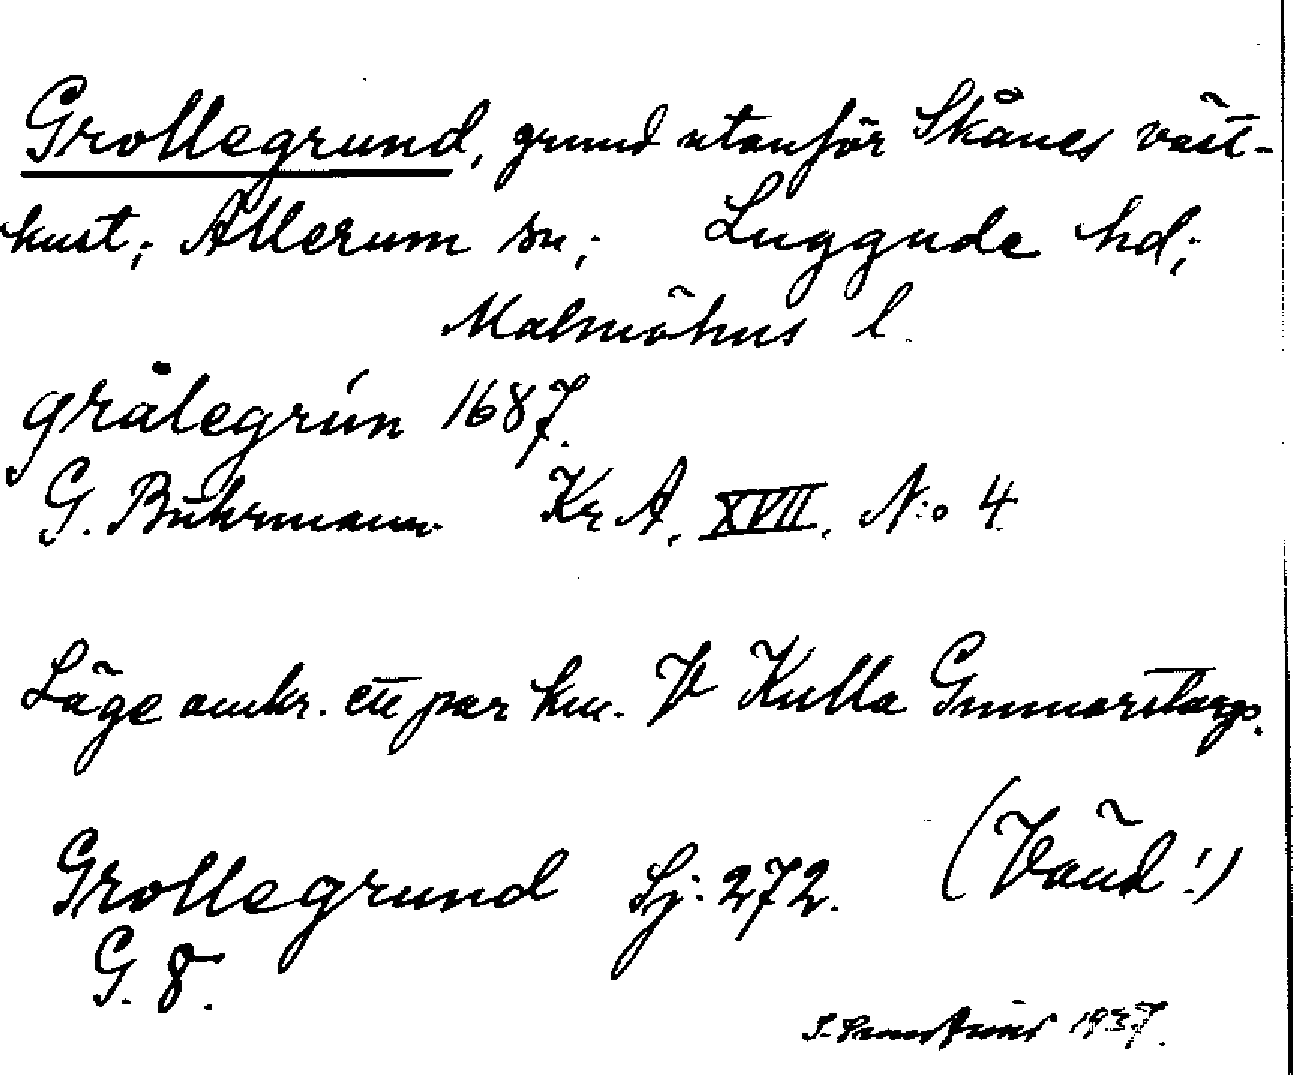 Grollegrund, grund utanför Skånes väst-
kust; Allerum sn; Luggude hd;
Malmöhus l.
grålegrún 1687.
G. Buhrmann Kr A. XVII. N:o 4
Läge omkr. ett par km. V Kulla Gunnarstorp.
Grollegrund Sj: 272. (Vänd!)
G. 8.
1937.